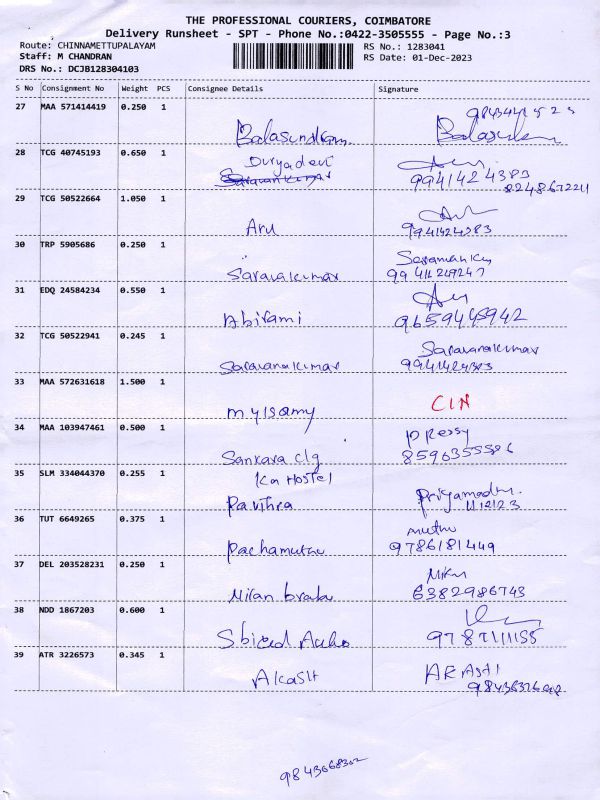 THE PROFESSIONAL COURIERS, COIMBATORE
Delivery Runsheet - SPT - Phone No.:0422-3505555 - Page No.:3
Route: CHINNAMETTUPALAYAM
RS No.: 1283041
Staff: M CHANDRAN
RS Date: 01-Dec-2023
DRS No.: DCJB128304103
S No Consignment No Weight PCS Consignee Details Signature
27 MAA 571414419 0.250 1
Balasundram
28 TCG 40745193 0.650 1 Duryadevi
Saravankumar 9941424383
8248672211
29 TCG 50522664 1.050 1
Aru 9941424383
30 TRP 5905686 0.250 1
Saravakumar
31 EDQ 24584234 0.550 1
Abirami 9659445942
32 TCG 50522941 0.245 1 Saravanakumar
Saravanakumar 9941424383
33 MAA 572631618 1.500 1
mylsamy CIN
34 MAA 103947461 0.500 1
Sankara clg 8596355586
35 SLM 334044370 0.255 1 Hostel
Pavithra 1/12/23
36 TUT 6649265 0.375 1 muthu
Pachamuthu 9786181449
37 DEL 203528231 0.250 1
Milan 6382986743
38 NDD 1867203 0.600 1
9787111155
39 ATR 3226573 0.345 1
Akash AKASH